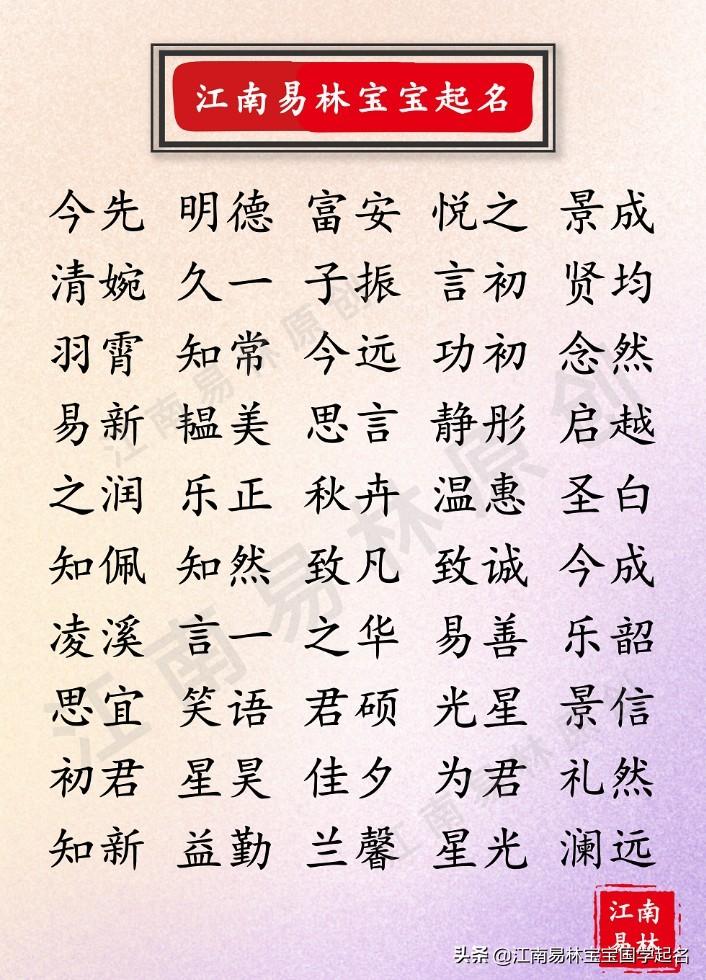 江南易林宝宝起名
今先 明德 富安 悦之 景成
清婉 久一 子振 言初 贤均
羽霄 知常 今远 功初 念然
易新 韫美 思言 静彤 启越
之润 乐正 秋卉 温惠 圣白
知佩 知然 致凡 致诚 今成
凌溪 言一 之华 易善 乐韶
思宜 笑语 君硕 光星 景信
初君 星昊 佳夕 为君 礼然
知新 益勤 兰馨 星光 澜远
江南易林原创
江南易林原创
江南易林原创
江南
易林
头条 @江南易林宝宝国学起名